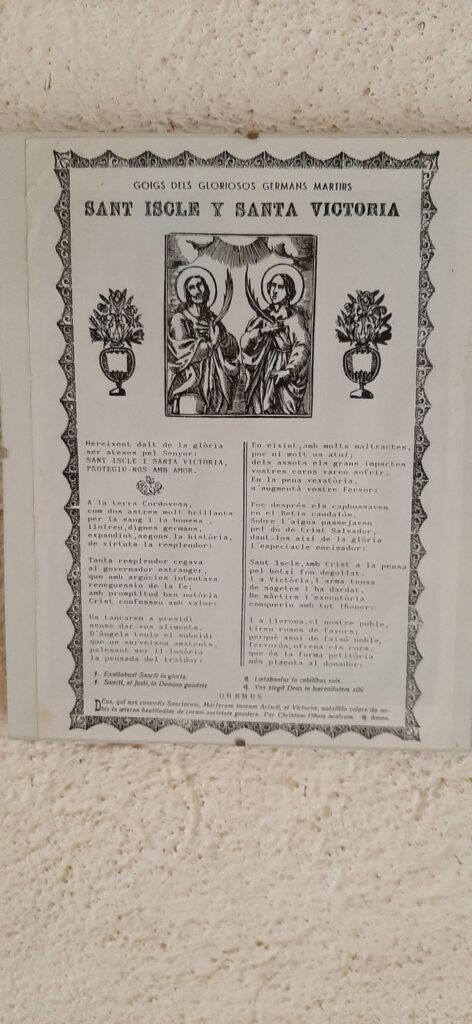 GOIGS DELS GLORIOSOS GERMANS MARTIRS
SANT ISCLE Y SANTA VICTORIA
Mereixent dalt de la glòria
ser atesos pel Senyor:
SANT ISCLE I SANTA VICTORIA,
PROTEGIU-NOS AMB AMOR.
A la terra Cordovesa,
com dos astres molt brillants
per la sang i la bonesa
lluíreu, dignes germans,
expandint, segons la història,
de virtuts la resplendor:
Tanta resplendor cegava
al governador estranger,
que amb argúcies intentava
reneguessiu de la fe;
amb promptitud ben notòria
Crist confesseu amb valor:
Us tancaren a presidi
sense dar-vos aliments.
D'àngels teniu el subsidi
que us serveixen amatents,
palesant ser il·lusòria
la pensada del traïdor:
En eixint, amb molts maltractes,
poc ni molt us atuí;
dels assots els grans impactes
vostres carns varen sofrir.
En la pena vexatòria,
s'augmentà vostre fervor:
Poc després els capbussaven
en el Betis caudalós.
Sobre l'aigua passejaven
pel do de Crist Salvador,
daut-los així de la glòria
l'espectacle encisador:
Sant Iscle, amb Crist a la pensa
pel botxí fou degollat.
I a Victòria, l'arma tensa
de sagetes l'ha dardat.
De màrtirs l'executòria
conqueriu amb tot lhonor:
I a Llerona, el nostre poble,
tireu roses de favors;
perquè avui de faisó noble,
fervorós, ofrena els cors,
que és la forma petitòria
més plaenta al donador:
℣. Exultabunt Sancti in gloria.
℟. Laetabuntur in cubilibus suis.
℣. Sancti, et justi, in Domino gaudete
℟. Vos elegit Deus in haereditatem sibi
OREMUS
Deus, qui nos concedis Sanctorum, Martyrum tuorum Aciscli, et Victoriae, natalitia colere da no-
bis in aeterna beatitudine de eorum societate gaudere. Per Christum Dnum nostrum. ℟. Amen.